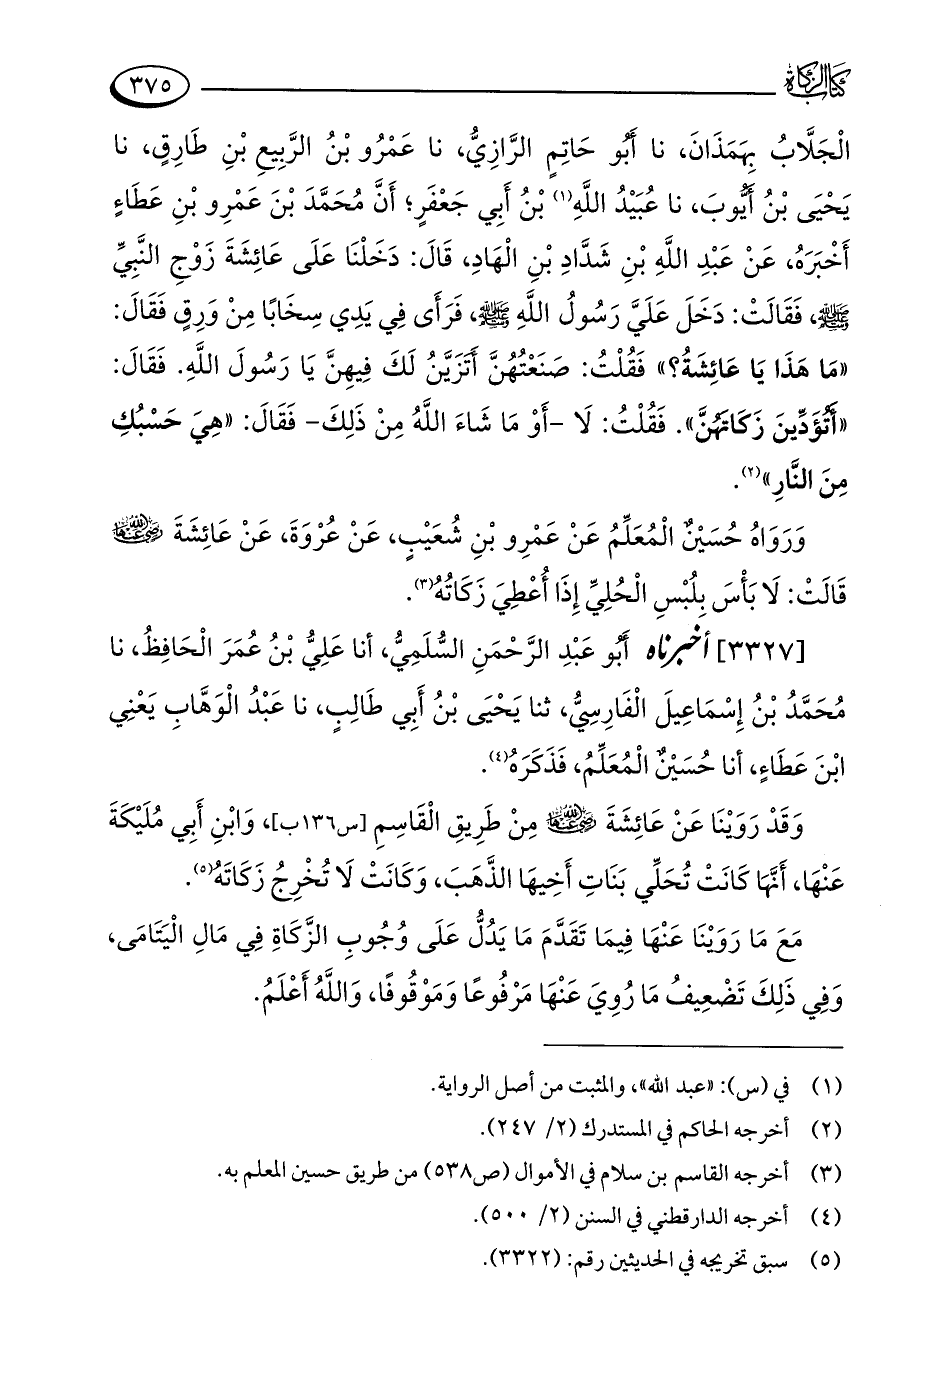 كتاب الزكاة ٣٧٥
الْجَلَّابُ بِهَمَذَانَ، نا أَبُو حَاتِمٍ الرَّازِيُّ، نا عَمْرُو بْنُ الرَّبِيعِ بْنِ طَارِقٍ، نا
يَحْيَى بْنُ أَيُّوبَ، نا عُبَيْدُ اللَّهِ(١) بْنُ أَبِي جَعْفَرٍ؛ أَنَّ مُحَمَّدَ بْنَ عَمْرِو بْنِ عَطَاءٍ
أَخْبَرَهُ، عَنْ عَبْدِ اللَّهِ بْنِ شَدَّادِ بْنِ الْهَادِ، قَالَ: دَخَلْنَا عَلَى عَائِشَةَ زَوْجِ النَّبِيِّ
ﷺ، فَقَالَتْ: دَخَلَ عَلَيَّ رَسُولُ اللَّهِ ﷺ، فَرَأَى فِي يَدِي سِخَابًا مِنْ وَرِقٍ فَقَالَ:
«مَا هَذَا يَا عَائِشَةُ؟» فَقُلْتُ: صَنَعْتُهُنَّ أَتَزَيَّنُ لَكَ فِيهِنَّ يَا رَسُولَ اللَّهِ. فَقَالَ:
«أَتُؤَدِّينَ زَكَاتَهُنَّ». فَقُلْتُ: لَا -أَوْ مَا شَاءَ اللَّهُ مِنْ ذَلِكَ- فَقَالَ: «هِيَ حَسْبُكِ
مِنَ النَّارِ»(٢).
وَرَوَاهُ حُسَيْنٌ الْمُعَلِّمُ عَنْ عَمْرِو بْنِ شُعَيْبٍ، عَنْ عُرْوَةَ، عَنْ عَائِشَةَ رضي الله عنها
قَالَتْ: لَا بَأْسَ بِلُبْسِ الْحُلِيِّ إِذَا أُعْطِيَ زَكَاتُهُ(٣).
[٣٣٢٧] أخبرناه أَبُو عَبْدِ الرَّحْمَنِ السُّلَمِيُّ، أنا عَلِيُّ بْنُ عُمَرَ الْحَافِظُ، نا
مُحَمَّدُ بْنُ إِسْمَاعِيلَ الْفَارِسِيُّ، ثنا يَحْيَى بْنُ أَبِي طَالِبٍ، نا عَبْدُ الْوَهَّابِ يَعْنِي
ابْنَ عَطَاءٍ، أنا حُسَيْنٌ الْمُعَلِّمُ، فَذَكَرَهُ(٤).
وَقَدْ رَوَيْنَا عَنْ عَائِشَةَ رضي الله عنها مِنْ طَرِيقِ الْقَاسِمِ [س١٣٦ب]، وَابْنِ أَبِي مُلَيْكَةَ
عَنْهَا، أَنَّهَا كَانَتْ تُحَلِّي بَنَاتِ أَخِيهَا الذَّهَبَ، وَكَانَتْ لَا تُخْرِجُ زَكَاتَهُ(٥).
مَعَ مَا رَوَيْنَا عَنْهَا فِيمَا تَقَدَّمَ مَا يَدُلُّ عَلَى وُجُوبِ الزَّكَاةِ فِي مَالِ الْيَتَامَى،
وَفِي ذَلِكَ تَضْعِيفُ مَا رُوِيَ عَنْهَا مَرْفُوعًا وَمَوْقُوفًا، وَاللَّهُ أَعْلَمُ.
(١) في (س): «عبد الله»، والمثبت من أصل الرواية.
(٢) أخرجه الحاكم في المستدرك (٢/ ٢٤٧).
(٣) أخرجه القاسم بن سلام في الأموال (ص٥٣٨) من طريق حسين المعلم به.
(٤) أخرجه الدارقطني في السنن (٢/ ٥٠٠).
(٥) سبق تخريجه في الحديثين رقم: (٣٣٢٢).